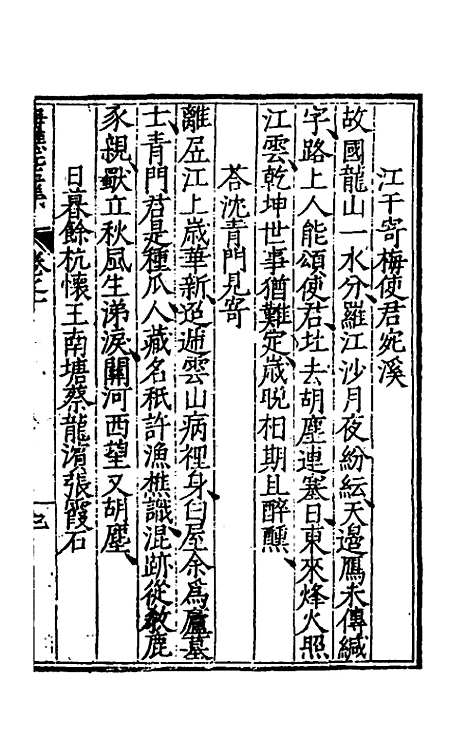 江干寄梅使君宛溪
故國龍山一水分羅江沙月夜紛紜天邉鴈未傳緘
字路上人能頌使君北去胡塵連塞日東來烽火照
江雲乾坤世事猶難定歲晚相期且醉醺
荅沈青門見寄
離居江上歲華新迢遞雲山病裡身白屋余爲廬墓
士青門君是種瓜人藏名秪許漁樵識混跡從教鹿
豕親獨立秋風生涕淚關河西望又胡塵
日暮餘杭懷王南塘蔡龍濱張霞石
卷之